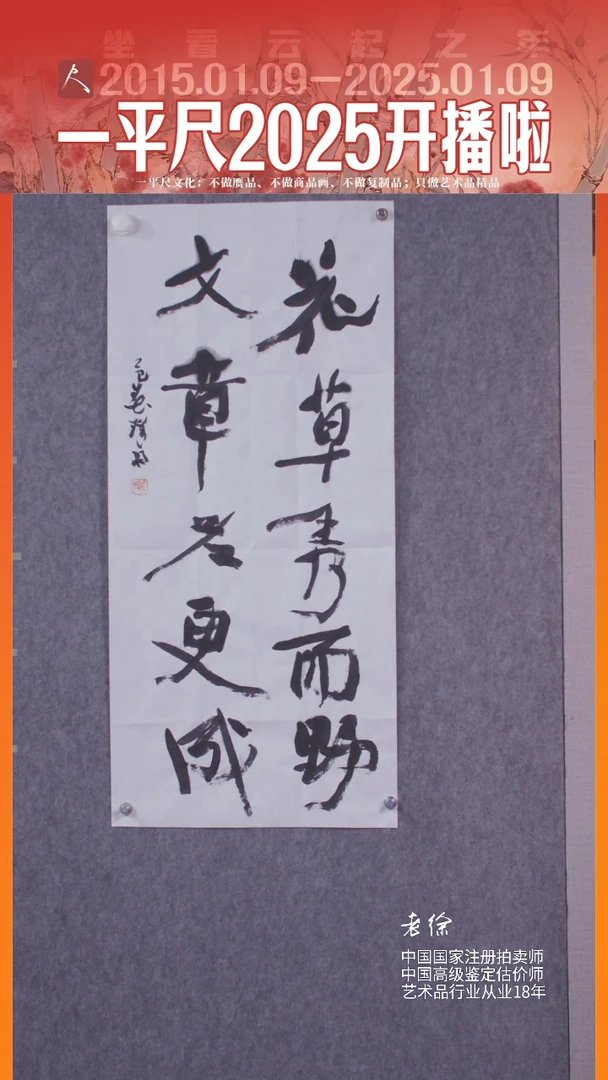 坐看云起之年
2015.01.09—2025.01.09
一平尺2025开播啦
一平尺文化：不做赝品、不做商品画、不做复制品；只做艺术品精品
花草秀而野
文章老更成
老徐
中国国家注册拍卖师
中国高级鉴定估价师
艺术品行业从业18年